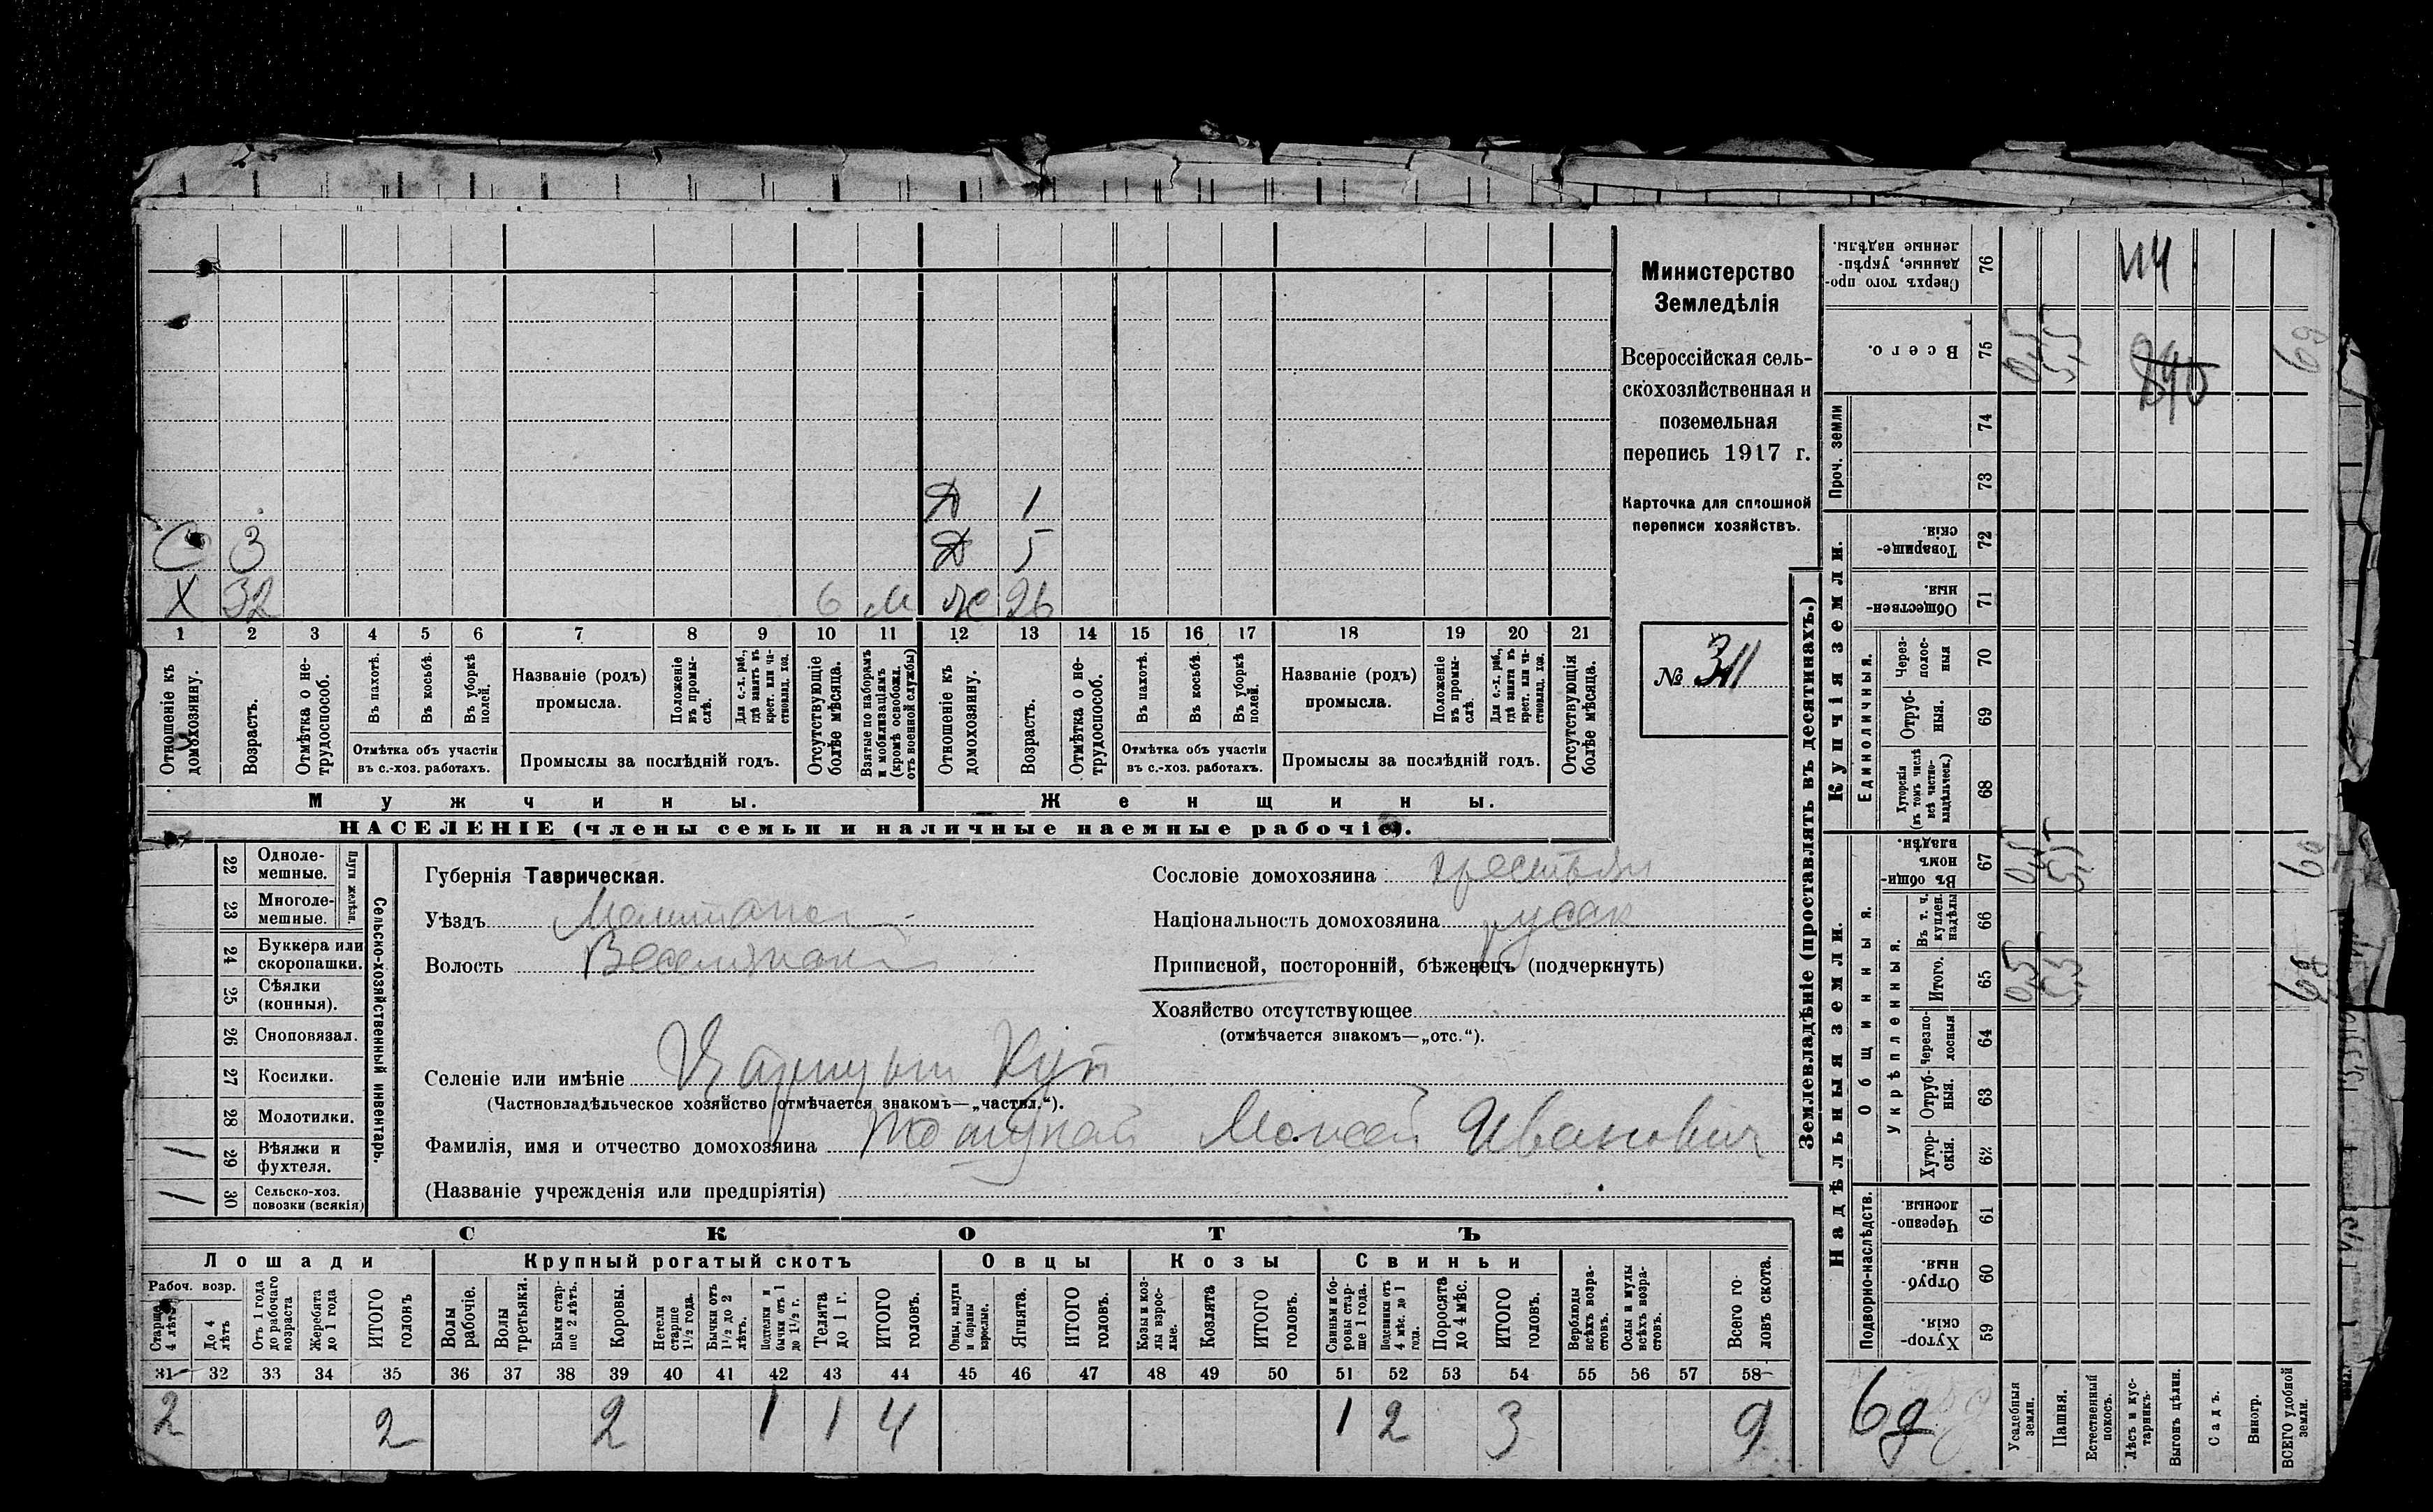 Министерство
Земледѣлія
Всероссійская сель-
скохозяйственная и
поземельная
перепись 1917 г.
Карточка для сплошной
переписи хозяйствъ.
№ 311
Д 1
С 3 Д 5
Х 32 6 м ж 26
1 2 3 4 5 6 7 8 9 10 11 12 13 14 15 16 17 18 19 20 21
Отношеніе къ домохозяину.
Возрастъ.
Отмѣтка о не-трудоспособ.
Въ пахотѣ.
Въ косьбѣ.
Въ уборкѣ полей.
Отмѣтка объ участіи
въ с.-хоз. работахъ.
Названіе (родъ)
промысла.
Положеніе въ промы-слѣ.
Для с.-х. раб., гдѣ занятъ въ крест. или ча-стновлад. хоз.
Промыслы за послѣдній годъ.
Отсутствующіе болѣе мѣсяца.
Взятые по наборамъ и мобилизаціямъ (кромѣ освобожд. отъ военной службы)
Отношеніе къ домохозяину.
Возрастъ.
Отмѣтка о не-трудоспособ.
Въ пахотѣ.
Въ косьбѣ.
Въ уборкѣ полей.
Отмѣтка объ участіи
въ с.-хоз. работахъ.
Названіе (родъ)
промысла.
Положеніе въ промы-слѣ.
Для с.-х. раб., гдѣ занята въ крест. или ча-стновлад. хоз.
Промыслы за послѣдній годъ.
Отсутствующія болѣе мѣсяца.
Мужчины. Женщины.
НАСЕЛЕНІЕ (члены семьи и наличные наемные рабочіе).
Сельско-хозяйственный инвентарь.
Плуги желѣзн.
22 Одноле-мешные.
23 Многоле-мешные.
24 Буккера или скоропашки.
25 Сѣялки (конныя).
26 Сноповязал.
27 Косилки.
28 Молотилки.
1 29 Вѣялки и фухтеля.
1 30 Сельско-хоз. повозки (всякія)
Губернія Таврическая.
Уѣздъ
Волость
Селеніе или имѣніе
(Частновладѣльческое хозяйство отмѣчается знакомъ—„частвл.“).
Фамилія, имя и отчество домохозяина Моисей Иванович
(Названіе учрежденія или предпріятія)
Сословіе домохозяина крестьян
Національность домохозяина русак
Приписной, посторонній, бѣженецъ (подчеркнуть)
Хозяйство отсутствующее
(отмѣчается знакомъ—„отс.“).
СКОТЪ
Лошади Крупный рогатый скотъ Овцы Козы Свиньи
Рабоч. возр.
Старше 4 лѣтъ
До 4 лѣтъ
Отъ 1 года до рабочаго возраста
Жеребята до 1 года
ИТОГО головъ
Волы рабочіе.
Волы третьяки.
Быки стар-ше 2 лѣтъ.
Коровы.
Нетели старше 1½ года.
Бычки отъ 1½ до 2 лѣтъ.
Подтелки и бычки отъ 1 до 1½ г.
Телята до 1 г.
ИТОГО головъ.
Овцы, валухи и бараны взрослые.
Ягнята.
ИТОГО головъ.
Козы и коз-лы взрос-лые.
Козлята
ИТОГО головъ.
Свиньи и бо-ровы стар-ше 1 года.
Подсвинки отъ 4 мѣс. до 1 года.
Поросята до 4 мѣс.
ИТОГО головъ.
Верблюды всѣхъ возра-стовъ.
Ослы и мулы всѣхъ возра-стовъ.
Всего го-ловъ скота.
31 32 33 34 35 36 37 38 39 40 41 42 43 44 45 46 47 48 49 50 51 52 53 54 55 56 57 58
2 2 2 1 1 4 1 2 3 9
Землевладѣніе (проставлять въ десятинахъ.)
Купчія земли.
Надѣльныя земли.
Проч. земли
Единоличныя.
Общинныя.
Укрѣпленныя.
Подворно-наслѣдств.
76 Сверхъ того про-данные, укрѣп-ленные надѣлы.
75 Всего. 0,5 5,5
74
73
72 Товарище-скія.
71 Обществен-ныя.
70 Через-полос-ныя
69 Отруб-ныя.
68 Хуторскія (въ томъ числѣ всѣ частно-владѣльческ.)
67 Въ общин-номъ владѣн. 0,5 5,5
66 Въ т. ч. куплен. надѣлы
65 Итого. 0,5 5,5
64 Черезпо-лосныя
63 Отруб-ныя.
62 Хутор-скія.
61 Черезпо-лосныя
60 Отруб-ныя.
59 Хутор-скія.
Усадебныя земли.
Пашня.
Естественный покосъ.
Лѣсъ и кус-тарникъ.
Выгонъ цѣлин.
Садъ.
Виногр.
ВСЕГО удобной земли.